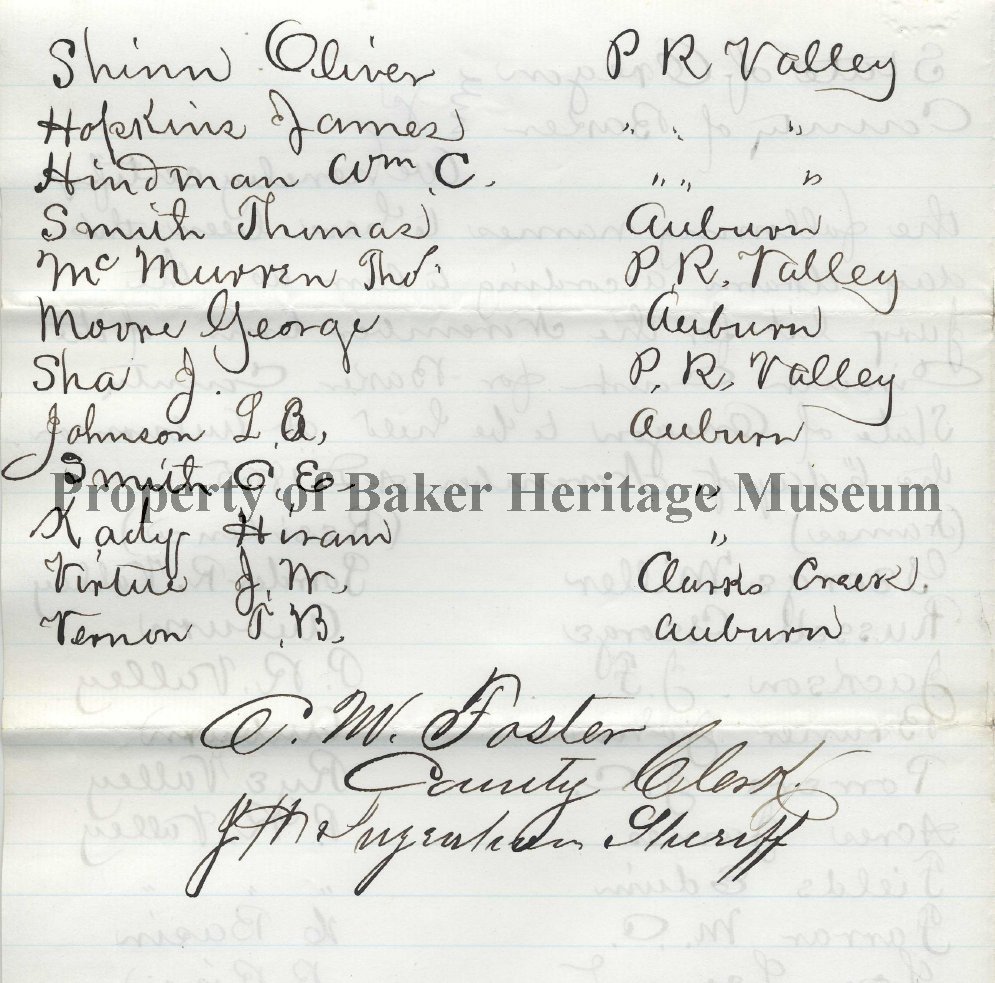 Shinn Oliver P R Valley
Hopkins James " " "
Hindman Wm. C. " " "
Smith Thomas Auburn
Mc Murren Thos. P. R. Valley
Moore George Auburn
Sha J. P. R. Valley
Johnson L. B. Auburn
Smith C. E. "
Property of Baker Heritage Museum
Kady Hiram "
Virtue J. W. Clarks Creek.
Vernon T. B. Auburn
C. M. Foster
County Clerk.
Sheriff